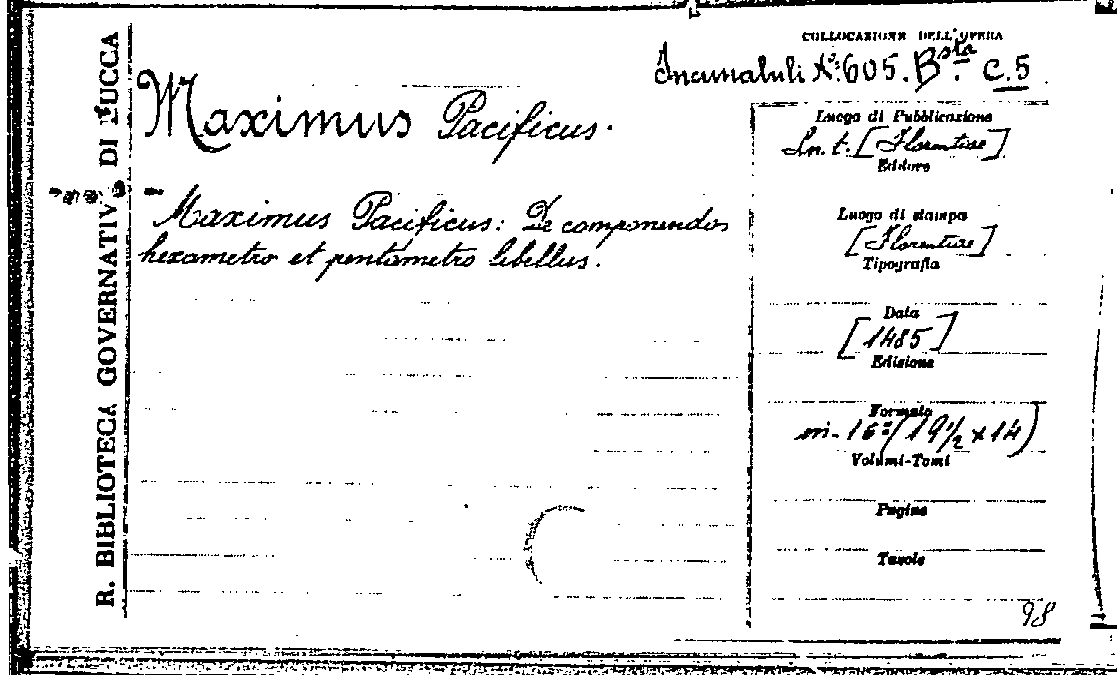 R. BIBLIOTECA GOVERNATIVA DI LUCCA
COLLOCAZIONE DELL'OPERA
Incunabuli N.º 605. Bsta. C.5
Maximus Pacificus.
Maximus Pacificus: De componendos
hexametro et pentametro libellus.
Luogo di Pubblicazione
Sn. t. [Florentiae]
Editore
Luogo di stampa
[Florentiae]
Tipografia
Data
[1485]
Edizione
Formato
in-16º (19½ x 14)
Volumi-Tomi
Pagine
Tavole
98